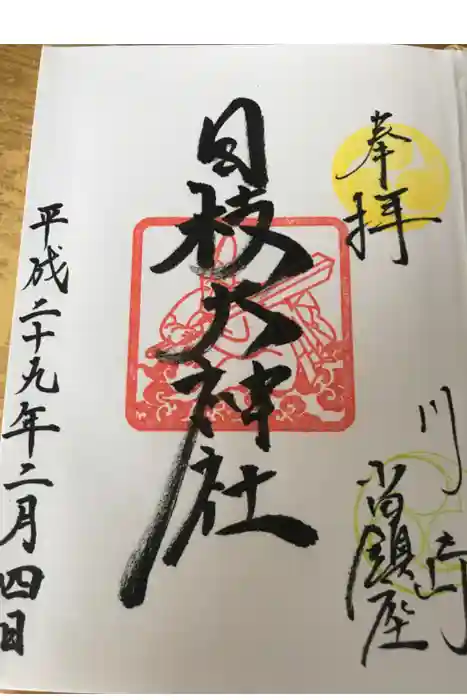 奉拝
川崎
小田鎮座
日枝大神社
平成二十九年二月四日